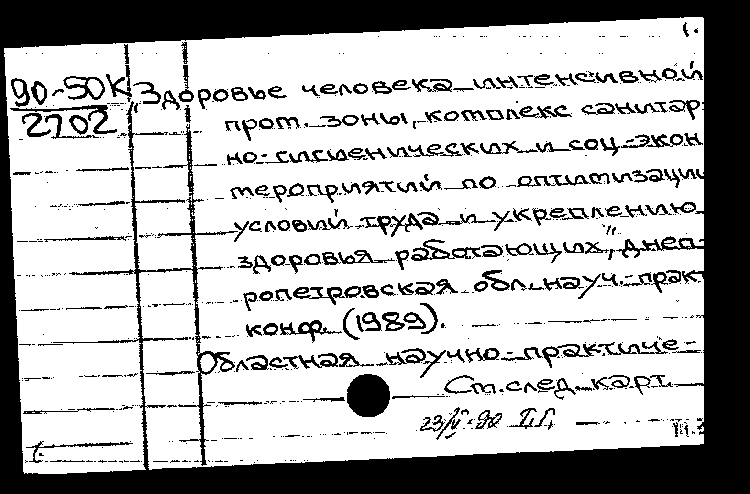 1.
90-50К
2702
„Здоровье человека интенсивной
пром. зоны, комплекс санитар-
но-гигиенических и соц.-экон.
мероприятий по оптимизации
условий труда и укреплению
здоровья работающих", Днеп-
ропетровская обл. науч.-практ.
конф. (1989).
Областная научно-практиче-
См. след. карт.
23/V-90 Т.Г.